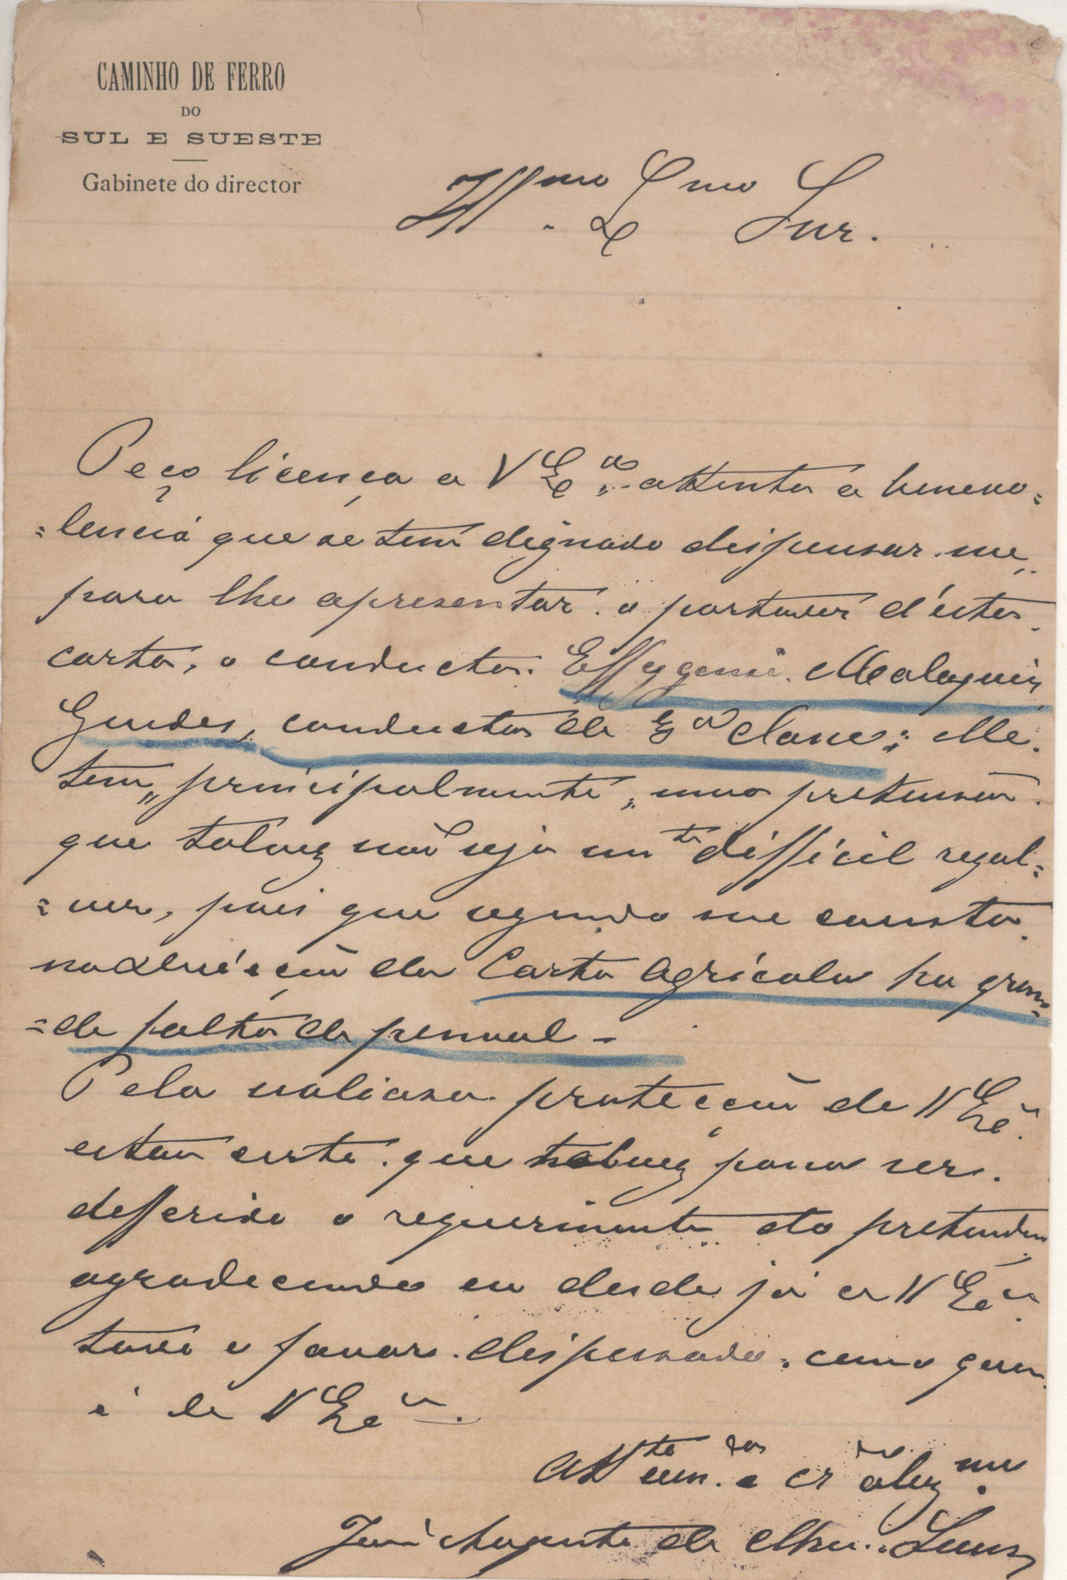 CAMINHO DE FERRO
DO
SUL E SUESTE
Gabinete do director
Illmo Exmo Snr.
Peço licença a V Exa attenta a benevo=
=lencia que se tem dignado dispensar-me,
para lhe apresentar o portador d'esta
carta, o conductor Malaquias
Guedes, conductor de 3a classe; Elle
tem, principalmente, uma pretensão
que talvez não seja mto difficil resol=
=ver, pois que segundo me consta
na direcção da Carta Agricola ha gran=
=de falta de pessoal -
Pela valiosa protecção de V Exa
estou certo que talvez possa ser
defferido o requerimento do
agradecendo eu desde já a V Exa
todo o favor dispensado, como quem
é de V Exa
Atto e cr obgmo
José Augusto de